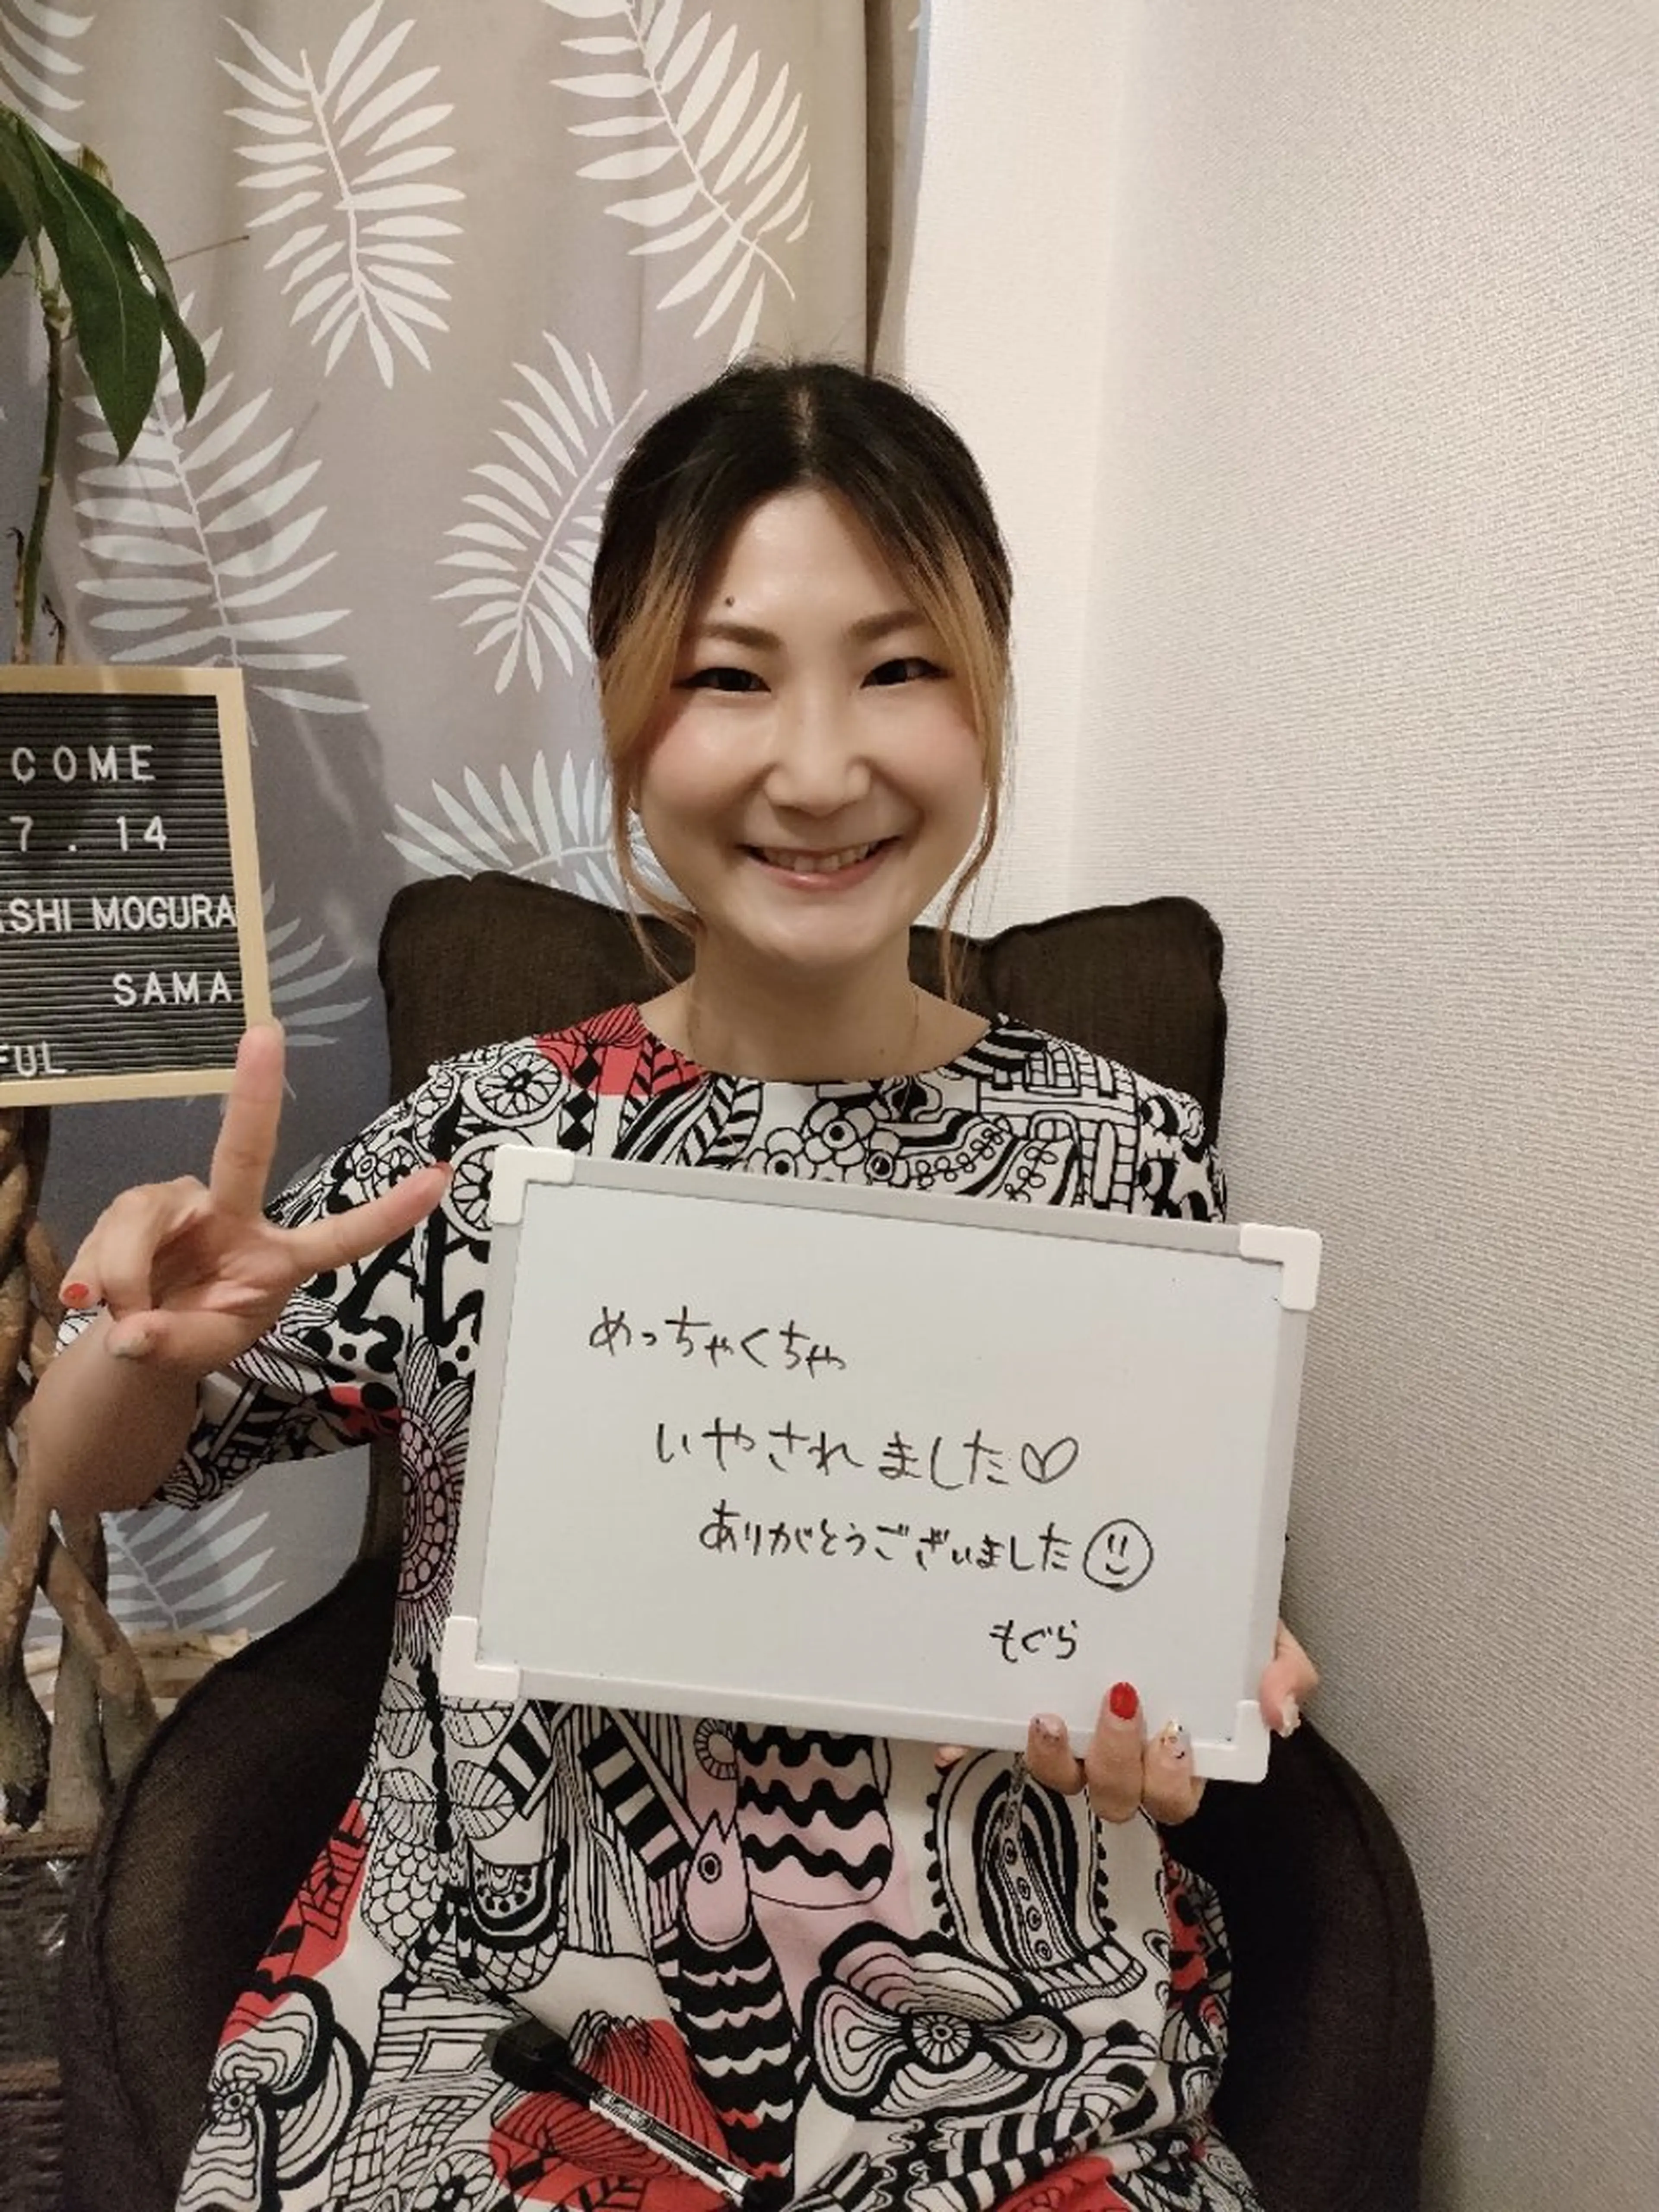 COME
7.14
ASHI MOGURA
SAMA
FUL
めっちゃくちゃ
いやされました♡
ありがとうございました
もぐら